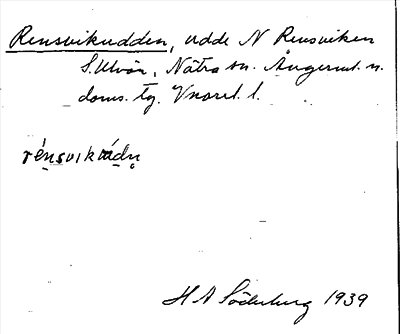 Rensvikudden, udde N Rensviken
S. Ulvön, Nätra sn. Ångerml. n.
doms. tg. Vnorrl. l.
rénsvikádn̥
H A Söderberg 1939